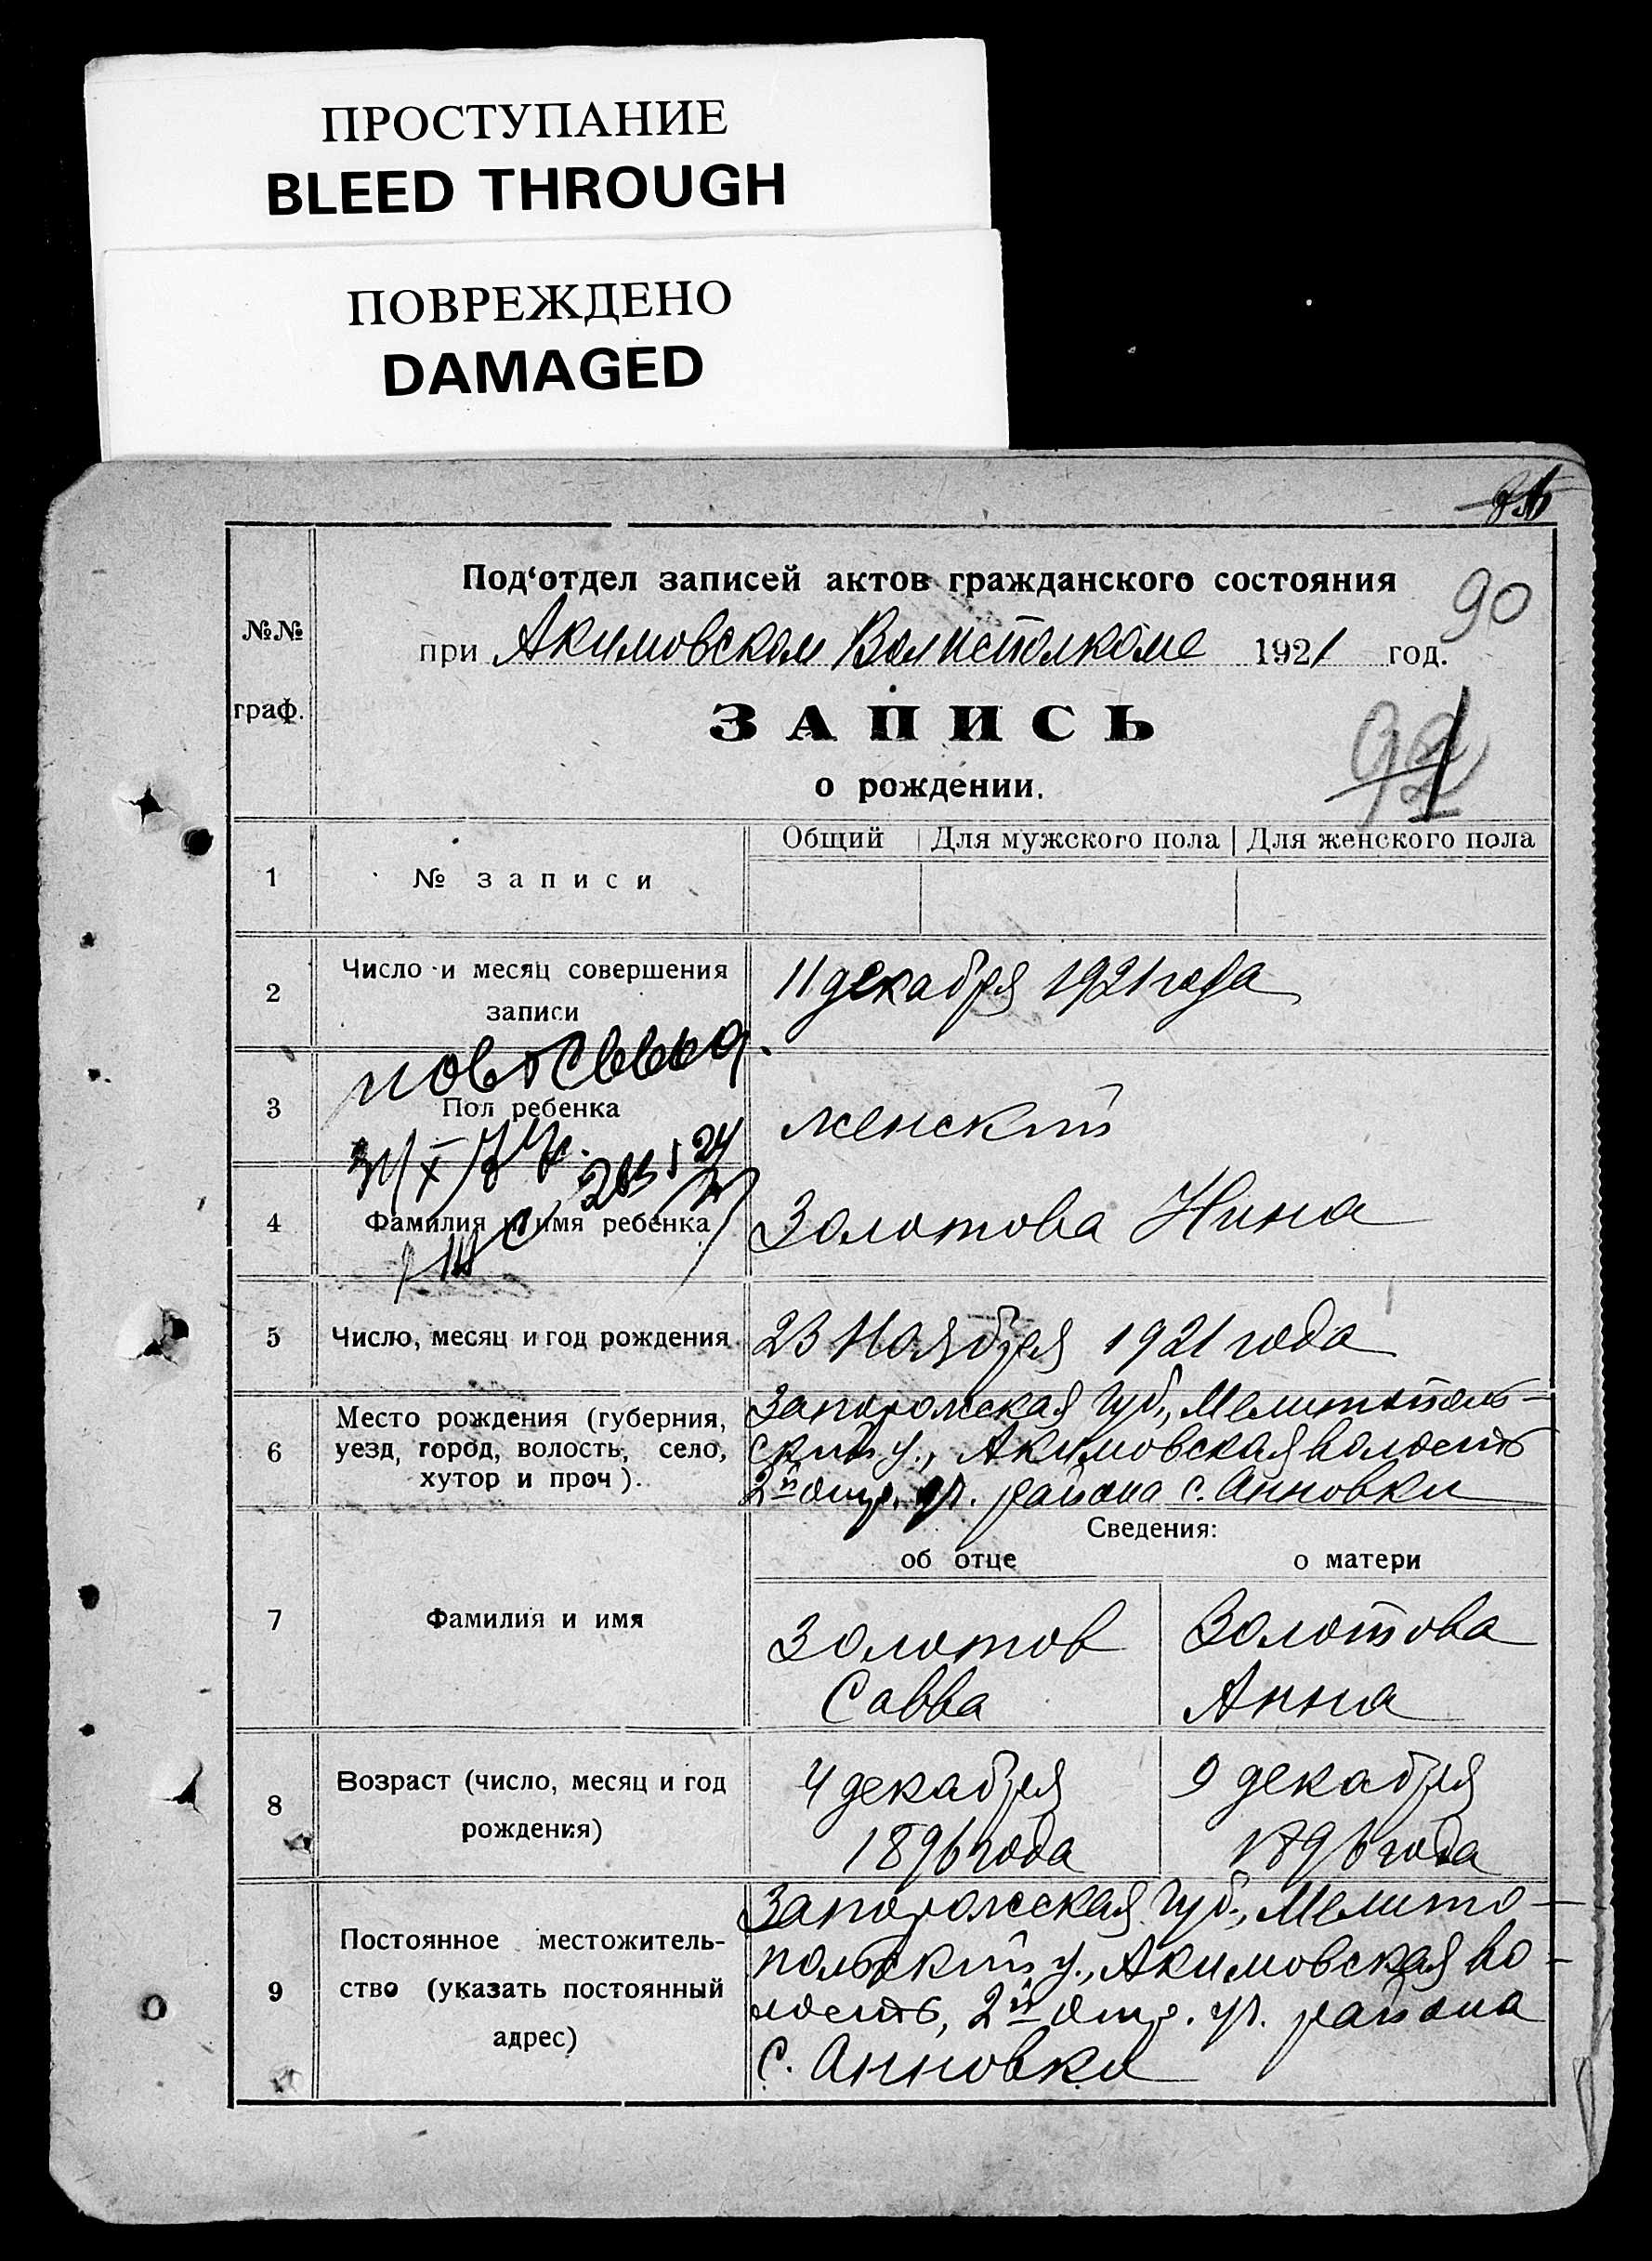 ПРОСТУПАНИЕ
BLEED THROUGH
ПОВРЕЖДЕНО
DAMAGED
Под‘отдел записей актов гражданского состояния
90
№№
граф.
при Акимовском Волисполкоме 1921 год.
ЗАПИСЬ
о рождении.
Общий Для мужского пола Для женского пола
1 № записи
2 Число и месяц совершения
записи
11 декабря 1921 года
3 Пол ребенка
женский
4 Фамилия и имя ребенка
Золотова Нина
5 Число, месяц и год рождения
23 Ноября 1921 года
6 Место рождения (губерния,
уезд, город, волость, село,
хутор и проч).
Запорожская губ., Мелитополь-
ский у., Акимовская волость
2й района с. Анновки
Сведения:
об отце о матери
7 Фамилия и имя
Золотов
Савва
Золотова
Анна
8 Возраст (число, месяц и год
рождения)
4 декабря
1896 года
9 декабря
1896 года
9 Постоянное местожитель-
ство (указать постоянный
адрес)
Запорожская губ., Мелито-
польский у., Акимовская во-
лость, 2й района
с. Анновки